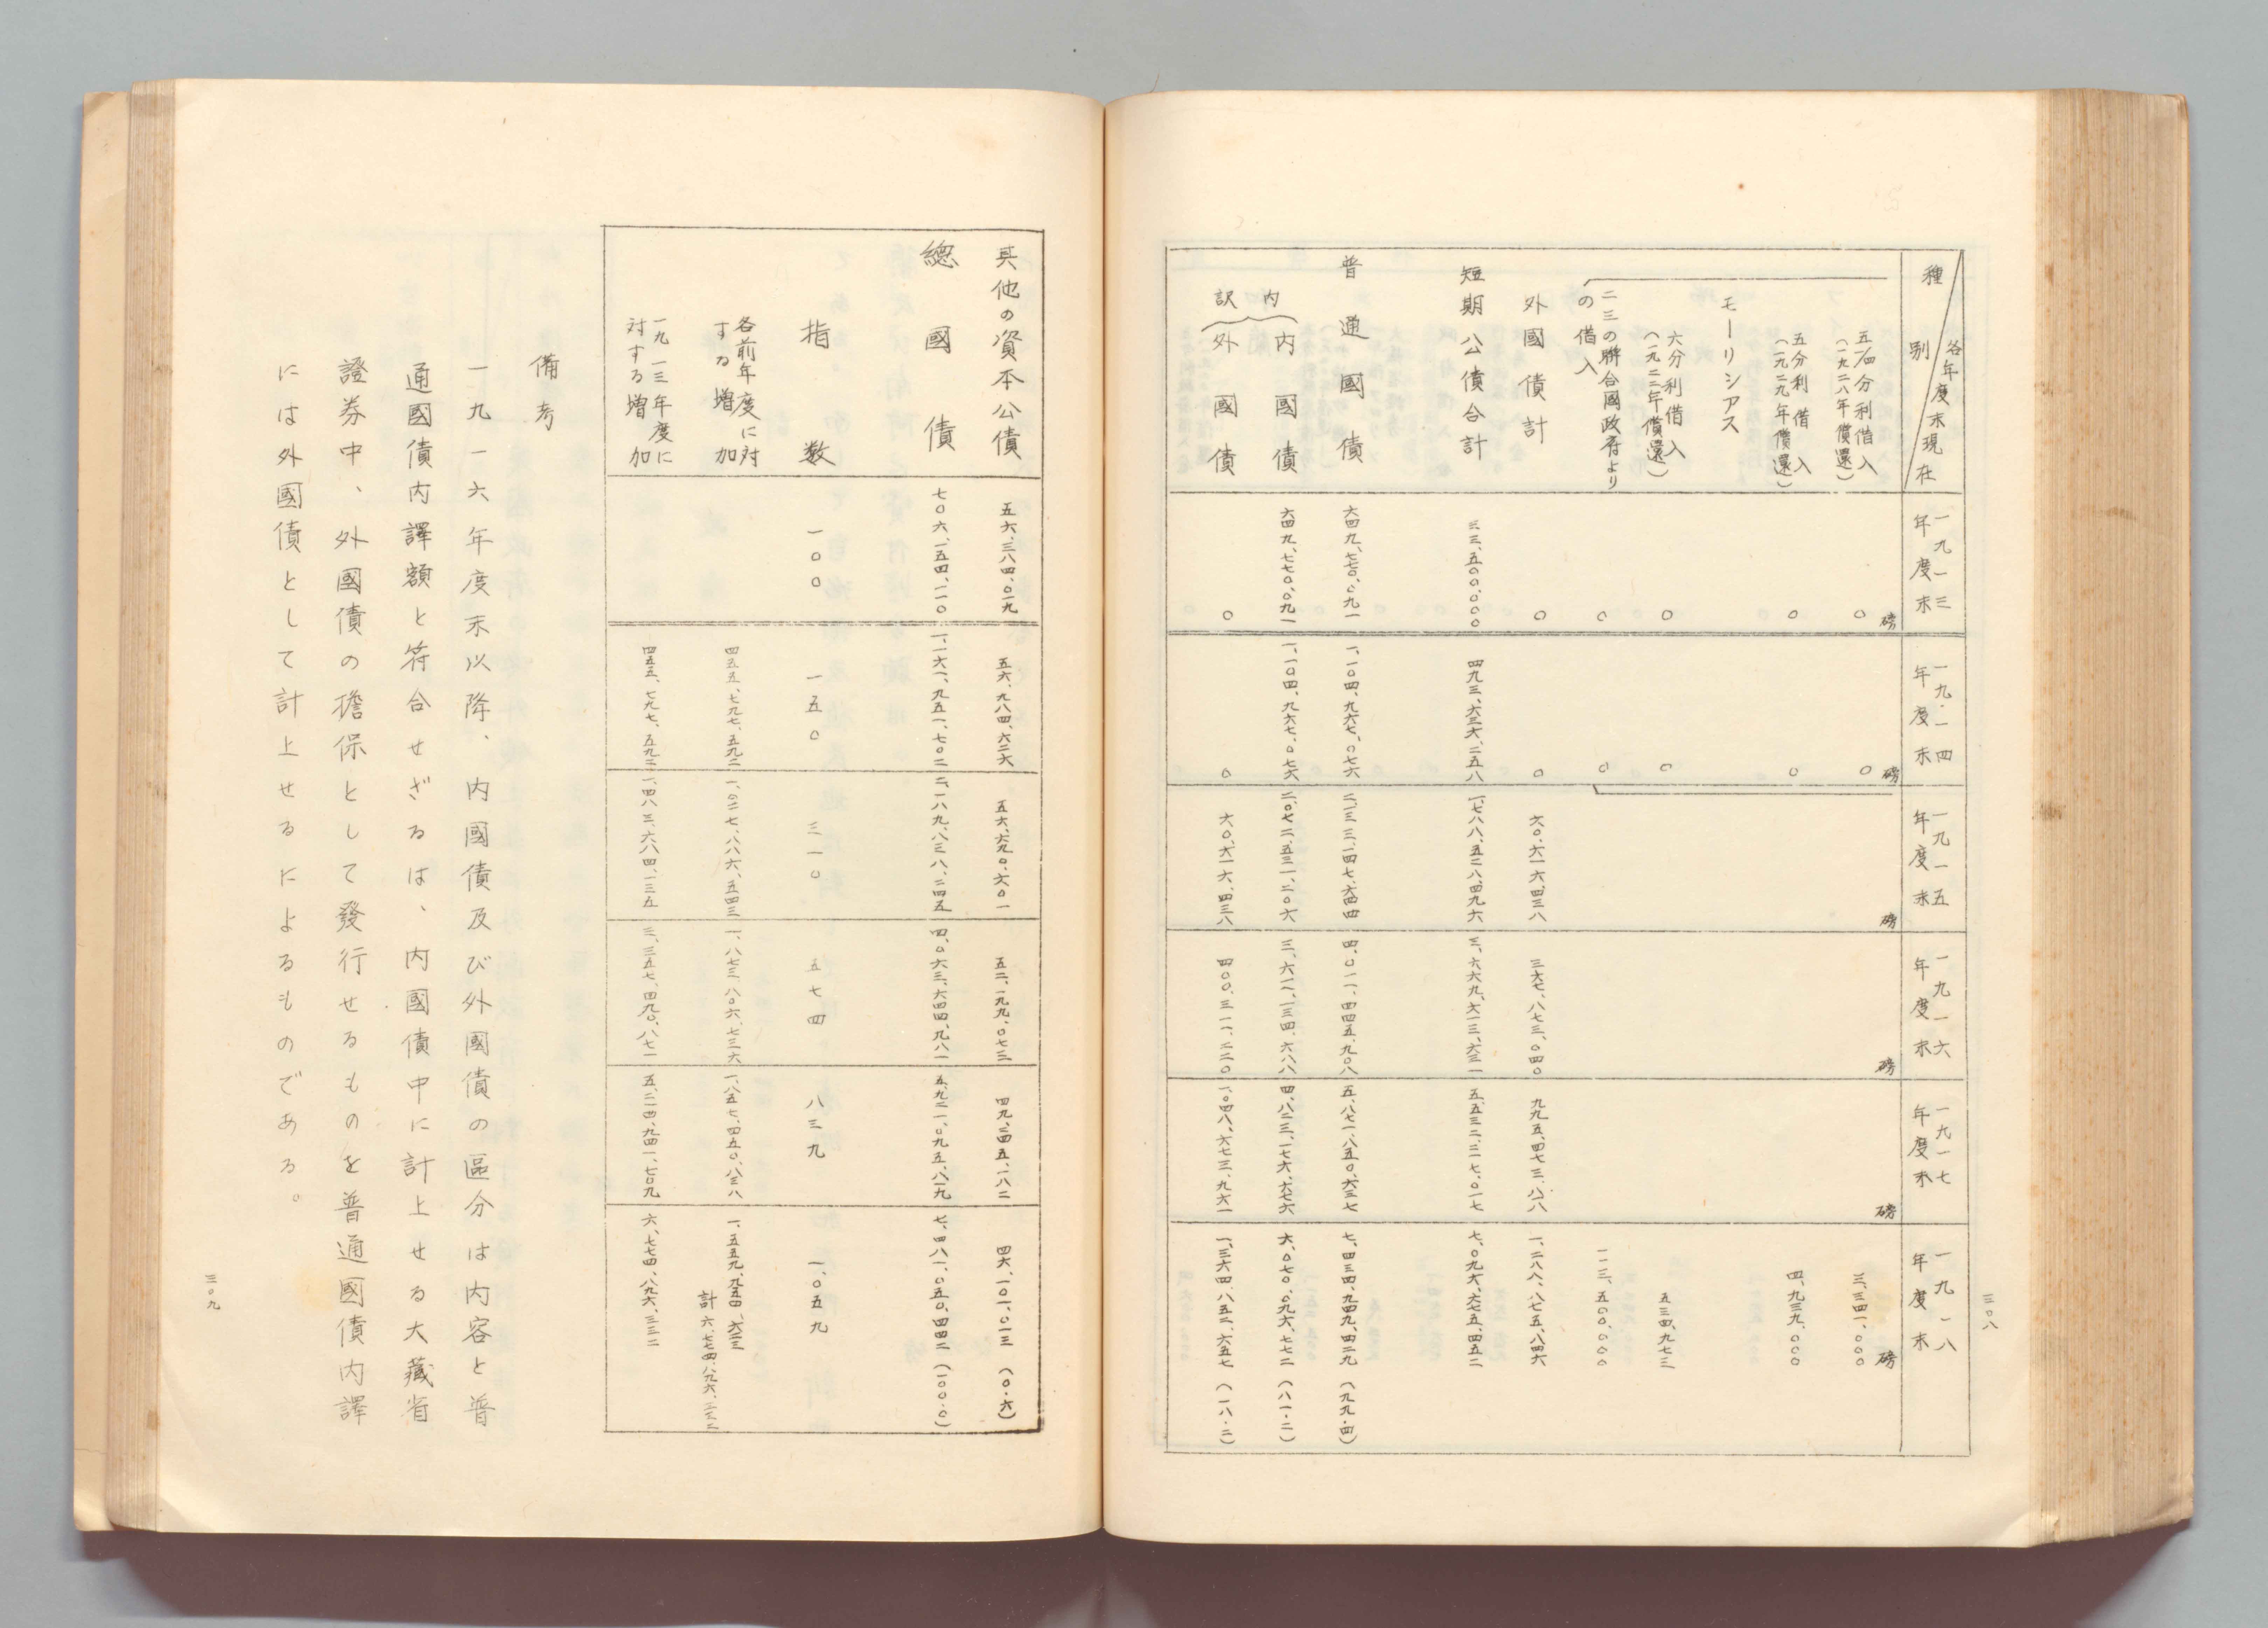 三〇八
種別 各年度末現在
一九一三年度末
一九一四年度末
一九一五年度末
一九一六年度末
一九一七年度末
一九一八年度末
磅 磅 磅 磅 磅 磅
五1/4分利借入(一九二八年償還) 〇 〇 三、三四一、〇〇〇
五分利借入(一九二九年償還) 〇 〇 四、九三九、〇〇〇
モーリシアス
六分利借入(一九二二年償還) 〇 〇 五三四、九七三
二三の聯合國政府より
の借入 〇 〇 一一三、五〇〇、〇〇〇
外國債計 〇 〇 六〇、六一六、四三八 三六七、八七三、〇四〇 九九五、四七三、八一八 一、二八八、八七五、八四六
短期公債合計 三三、五〇〇、〇〇〇 四九三、六三六、二五八 一、七八八、五二八、四九六 三、六六九、六一三、六三一 五、五三二、三一七、〇一七 七、〇九六、六七五、四五二
普通國債 六四九、七七〇、〇九一 一、一〇四、九六七、〇七六 二、一三三、一四七、六四四 四、〇一一、四四五、九〇八 五、八七一、八五〇、六三七 七、四三四、九四九、四二九(九九・四)
内訳
内國債 六四九、七七〇、〇九一 一、一〇四、九六七、〇七六 二、〇七二、五三一、二〇六 三、六一一、一三四、六八八 四、八二三、一七六、六七六 六、〇七〇、〇九六、七七二(八一・二)
外國債 〇 〇 六〇、六一六、四三八 四〇〇、三一一、二二〇 一、〇四八、六七三、九六一 一、三六四、八五二、六五七(一八・二)
其他の資本公債 五六、三八四、〇一九 五六、九八四、六二六 五六、六九〇、六〇一 五二、一九九、〇七三 四九、二四五、一八二 四六、一〇一、〇一三(〇・六)
總國債 七〇六、一五四、一一〇 一、一六一、九五一、七〇二 二、一八九、八三八、二四五 四、〇六三、六四四、九八一 五、九二一、〇九五、八一九 七、四八一、〇五〇、四四二(一〇〇・〇)
指数 一〇〇 一五〇 三一〇 五七四 八三九 一、〇五九
各前年度に対する増加 四五五、七九七、五九二 一、〇二七、八八六、五四三 一、八七三、八〇六、七三六 一、八五七、四五〇、八三八 一、五五九、九五四、六二三
計六、七七四、八九六、三三二
一九一三年度に対する増加 四五五、七九七、五九二 一、四八三、六八四、一三五 三、三五七、四九〇、八七一 五、二一四、九四一、七〇九 六、七七四、八九六、三三二
備考
一九一六年度末以降、内國債及び外國債の區分は内容と普
通國債内譯額と符合せざるは、内國債中に計上せる大藏省
證券中、外國債の擔保として發行せるものを普通國債内譯
には外國債として計上せるによるものである。
三〇九